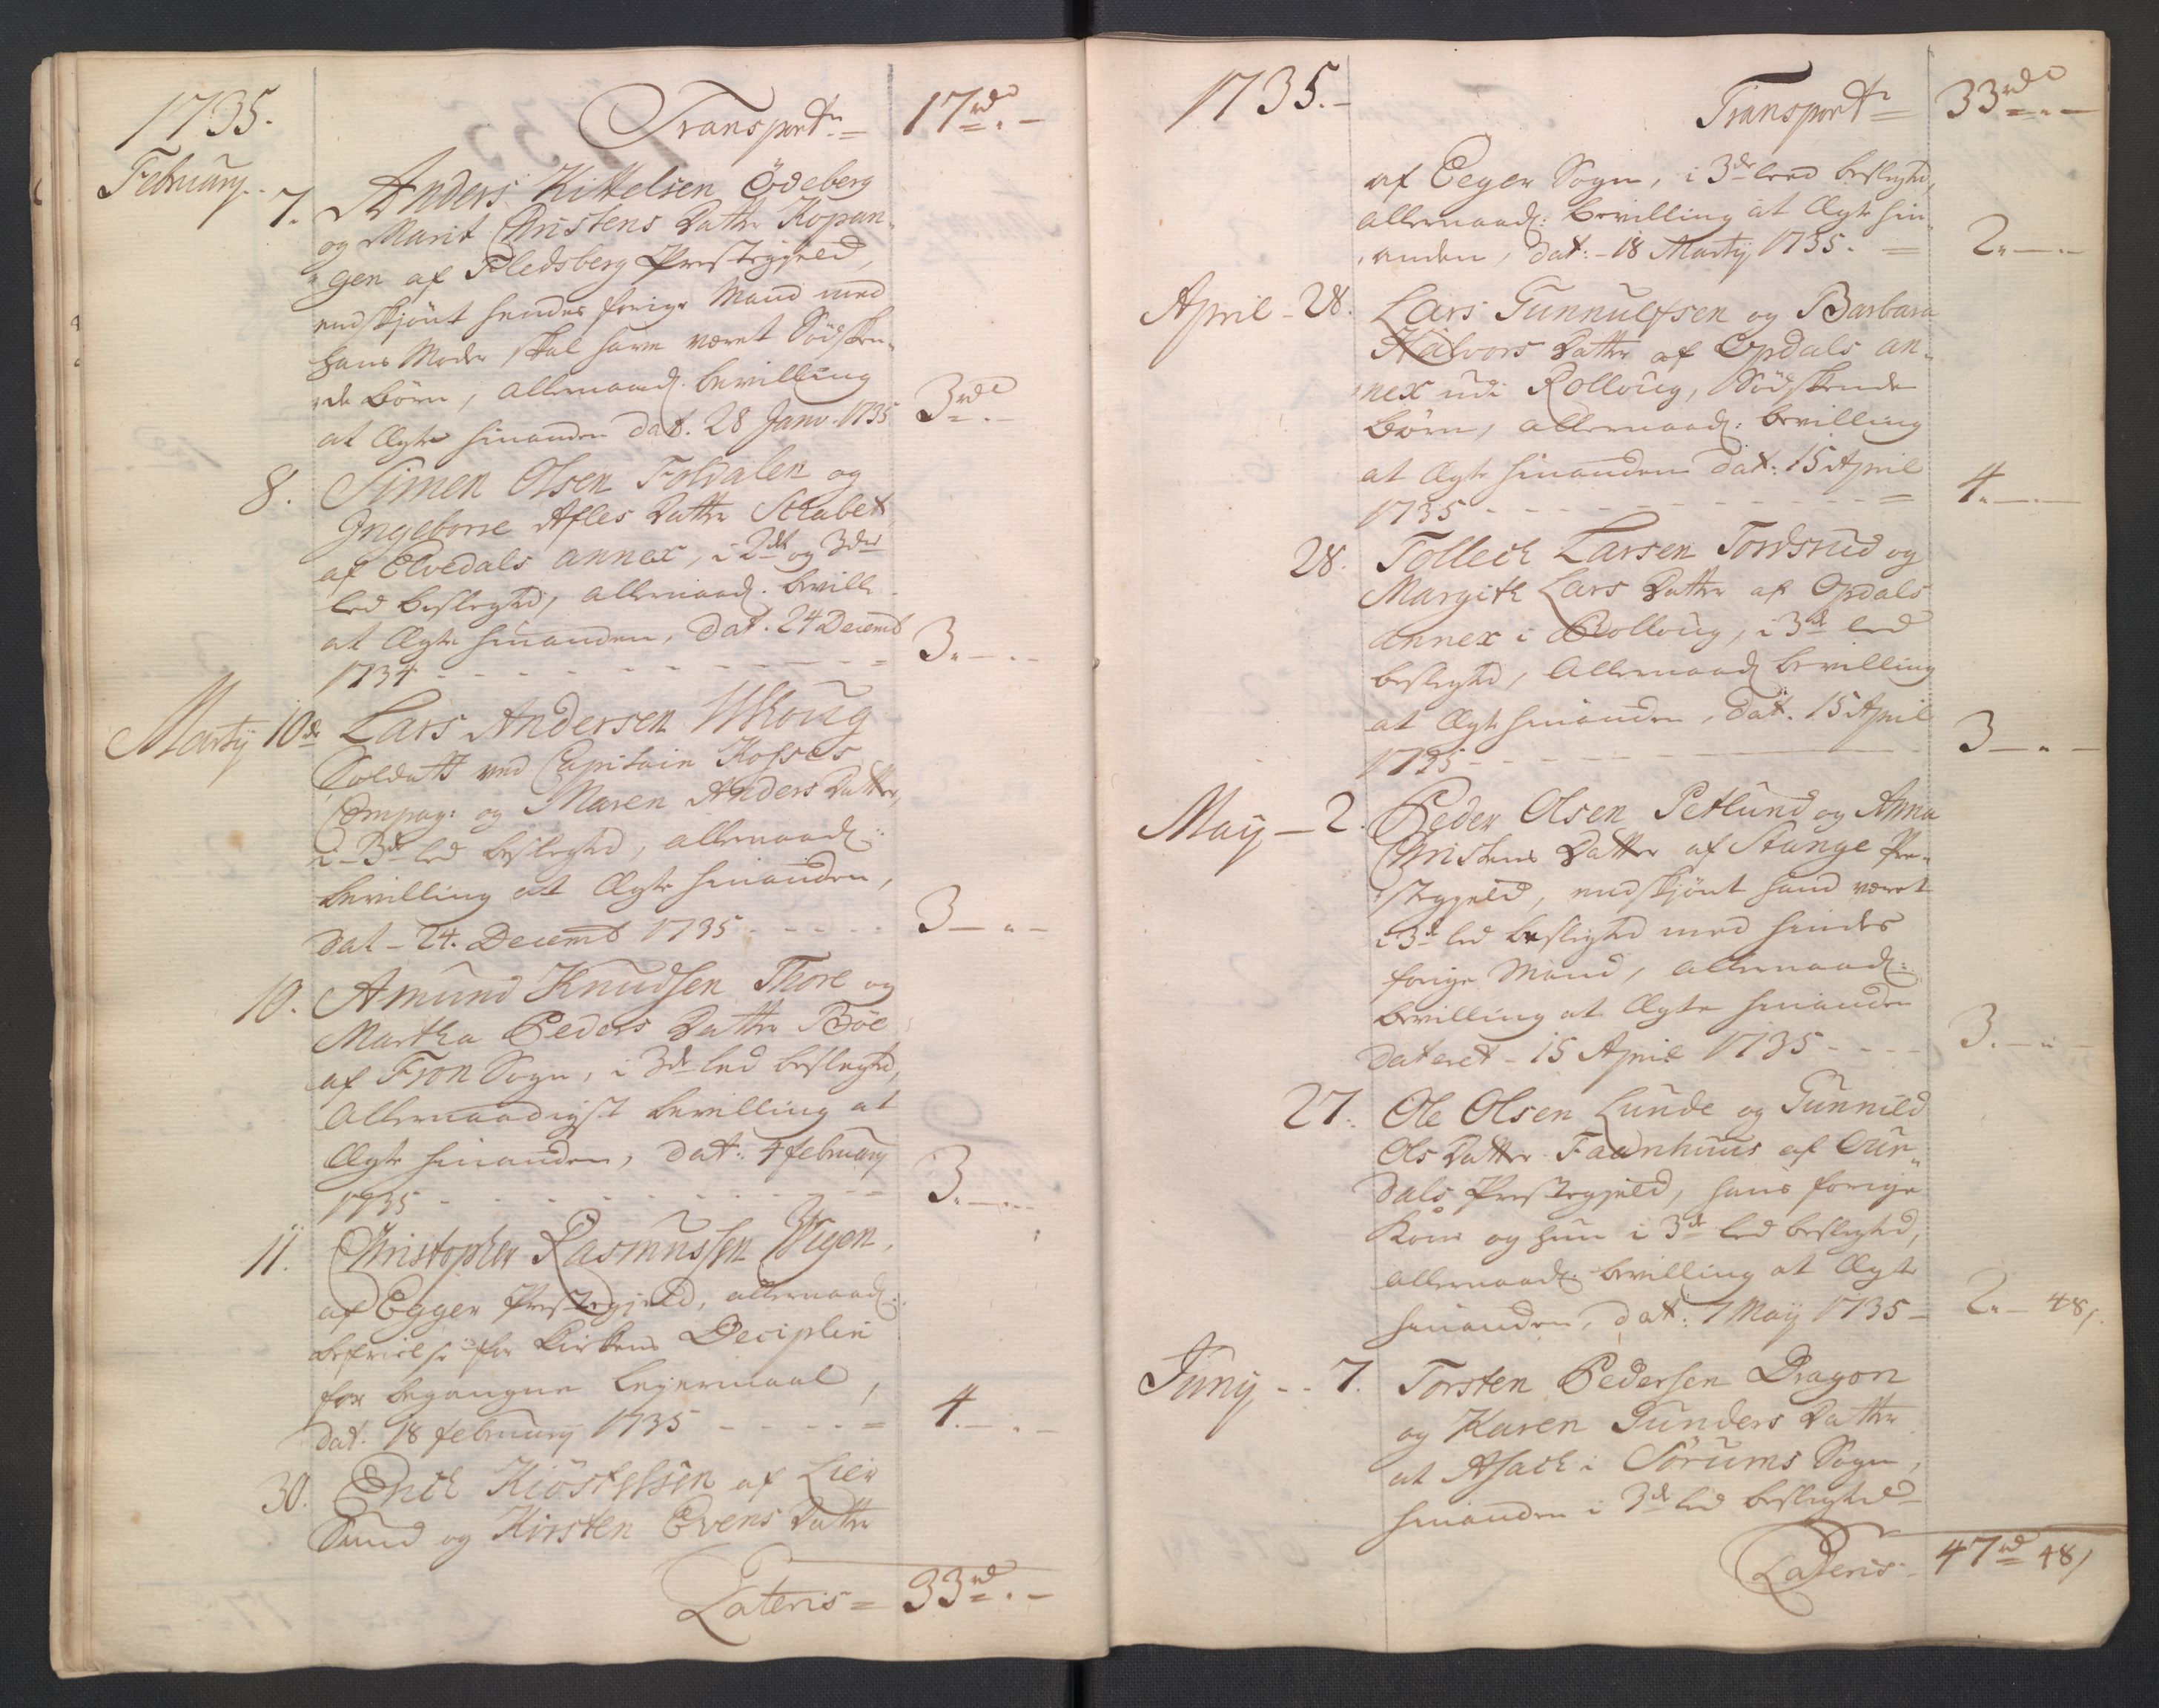 1735.
Transport = 17 rd. –
February. 7. Anders Kittelsen Ödeberg
og Marit Christens Datter Kopan-
gen af Fledsberg Prestegjeld,
endskjönt hendes forige Mand med
hans Moder skal have været Södsken-
de Börn, allernaad. bevilling
at Ægte hinanden dat. 28 Janv. 1735 3 rd –
8. Simen Olsen Foldalen og
Ingeborre Afles Datter Strabet
af Elvedals annex, i 2det og 3die
led beslegted, allernaad. bevill.
at Ægte hinanden, dat. 24 Decemb
1734 - - - - 3. –
Martij 10de Lars Andersen Skoug
Soldatt ved Capitain
Compag: og Maren Anders Datter,
i 3de led beslegted, allernaad:
bevilling at Ægte hinanden,
dat – 24. Decemb 1735 - - - 3 –
10. Amund Knudsen Thore og
Martha Peders Datter Böe
af Fron Sogn, i 3de led beslegted,
Allernaadigst bevilling at
Ægte hinanden, dat: 4 february
1735 - - - - 3. –
11. Christopher Rasmussen Wigen
af Egger Prestegjeld, allernaad:
befrielse for Kirkens Deciplin
for begangne Lejermaal,
dat. 18 february 1735 - - - = 4. –
30. Erich Kiöstelsen af Lier
Sund og Kirsten Evens Datter
Lateris = 33 rd. –
1735. –
Transport = 33 rd –
af Eeger Sogn, i 3de leed beslegted,
allernaad: bevilling at Ægte hin-
anden, dat: – 18 Martij 1735. = 2. –
April – 28. Lars Gunnulfsen og Barbara
Halvors Datter af Opdals an-
nex udi Rolloug, Södskende
Börn, allernaad: bevilling
at Ægte hinanden dat: 15 April
1735 - - - - = 4. –
28. Tollech Larsen Tordsrud og
Margith Lars Datter af Opdals
annex i Rolloug, i 3de led
beslegted, Allernaad bevilling
at Ægte hinanden, dat. 15 April
1735 - - - - 3 –
Maij – 2. Peder Olsen Petlund og Anna
Christens Datter af Stange Pre-
stegjeld, endskjönt hand været
i 3de led beslegted med hendes
forige Mand, allernaad:
bevilling at Ægte hinanden
dateret – 15 April 1735 - - - 3. –
27. Ole Olsen Lunde og Gunnild
Ols Datter Faanhuus af Our-
dals Prestegjeld, hans forige
Kone og hun i 3de led beslegted,
allernaad. bevilling at Ægte
hinanden, dat: 7 Maij 1735 – 2. – 48/
Junij - - 7. Torsten Pedersen Dragon
og Karen Gunders Datter
at Asach i Sörums Sogn,
hinanden i 3de led beslegted
Lateris – 47 rd 48/